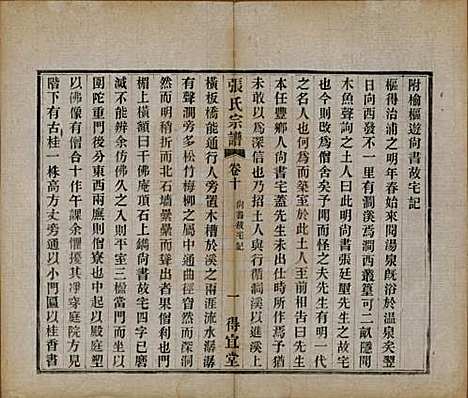 附榆樞遊尚書故宅記
樞得治浦之明年春始來閱湯泉既浴於溫泉矣翌
日向西發不一里有澗溪爲澗西叢篁可二畝隱聞
木魚聲詢之土人曰此明尚書張廷璽先生之故宅
也今則爲僧院矣予旣然而有感矣先生有明一代
之名人也何爲而築室於此與土人至前相告曰先生
本任豐鄉人尚書宅蓋先生出仕時所作焉予猶
未敢以爲深信也乃招土人與行循澗溪以進溪上
橫板橋能通行人旁置木槽於溪之兩涯流水潺潺
有聲澗旁多松竹梅柳之屬中通曲徑窈然而深洞
然而明稍折而北石墻疊疊而已聲光所自出者也
楣上橫額曰千佛庵頂石上鐫尚書故宅四字已磨
滅不能辨余彷佛久之入則平室三楹爲當門而塑
團陀重門後分東西兩庭則僧寮在焉以殿庭塑
以佛像有僧合十作午課余懼擾其凈穿庭院方見
階下有古桂一株高方丈旁通以小門區以桂香書
張氏宗譜
卷十
尚書故宅記
一
得宜堂